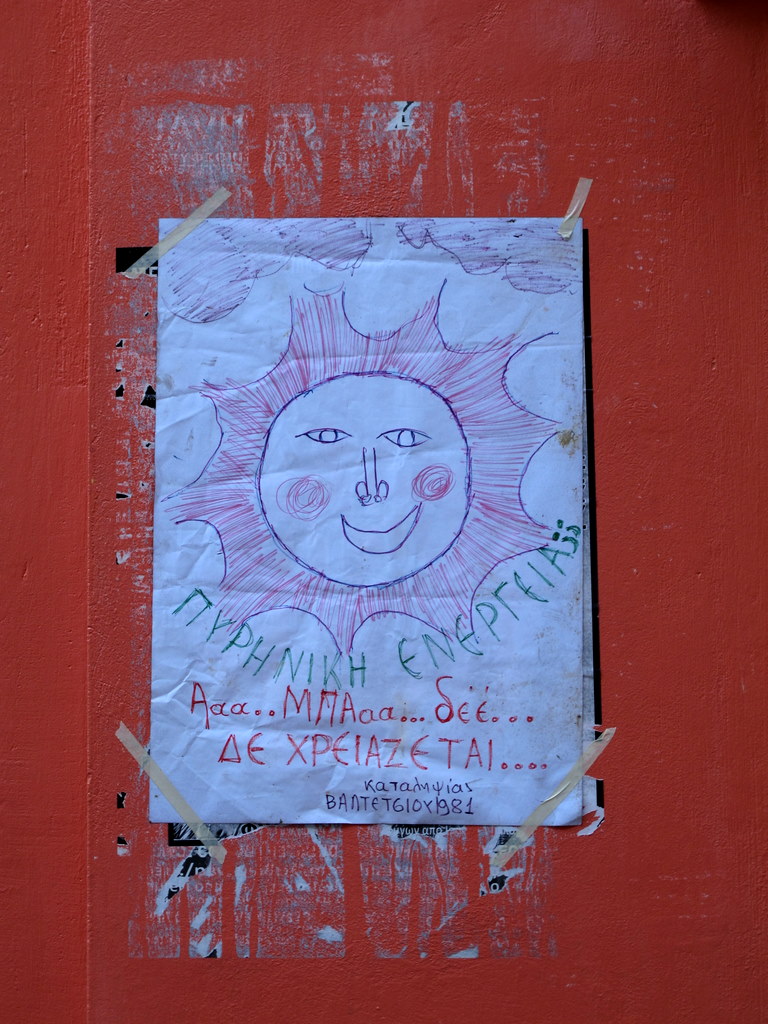 ΠΥΡΗΝΙΚΗ ΕΝΕΡΓΕΙΑ;;
Ααα..ΜΠΑαα...δέέ...
ΔΕ ΧΡΕΙΑΖΕΤΑΙ....
καταληψίας
ΒΑΛΤΕΤΣΙΟΥ1981